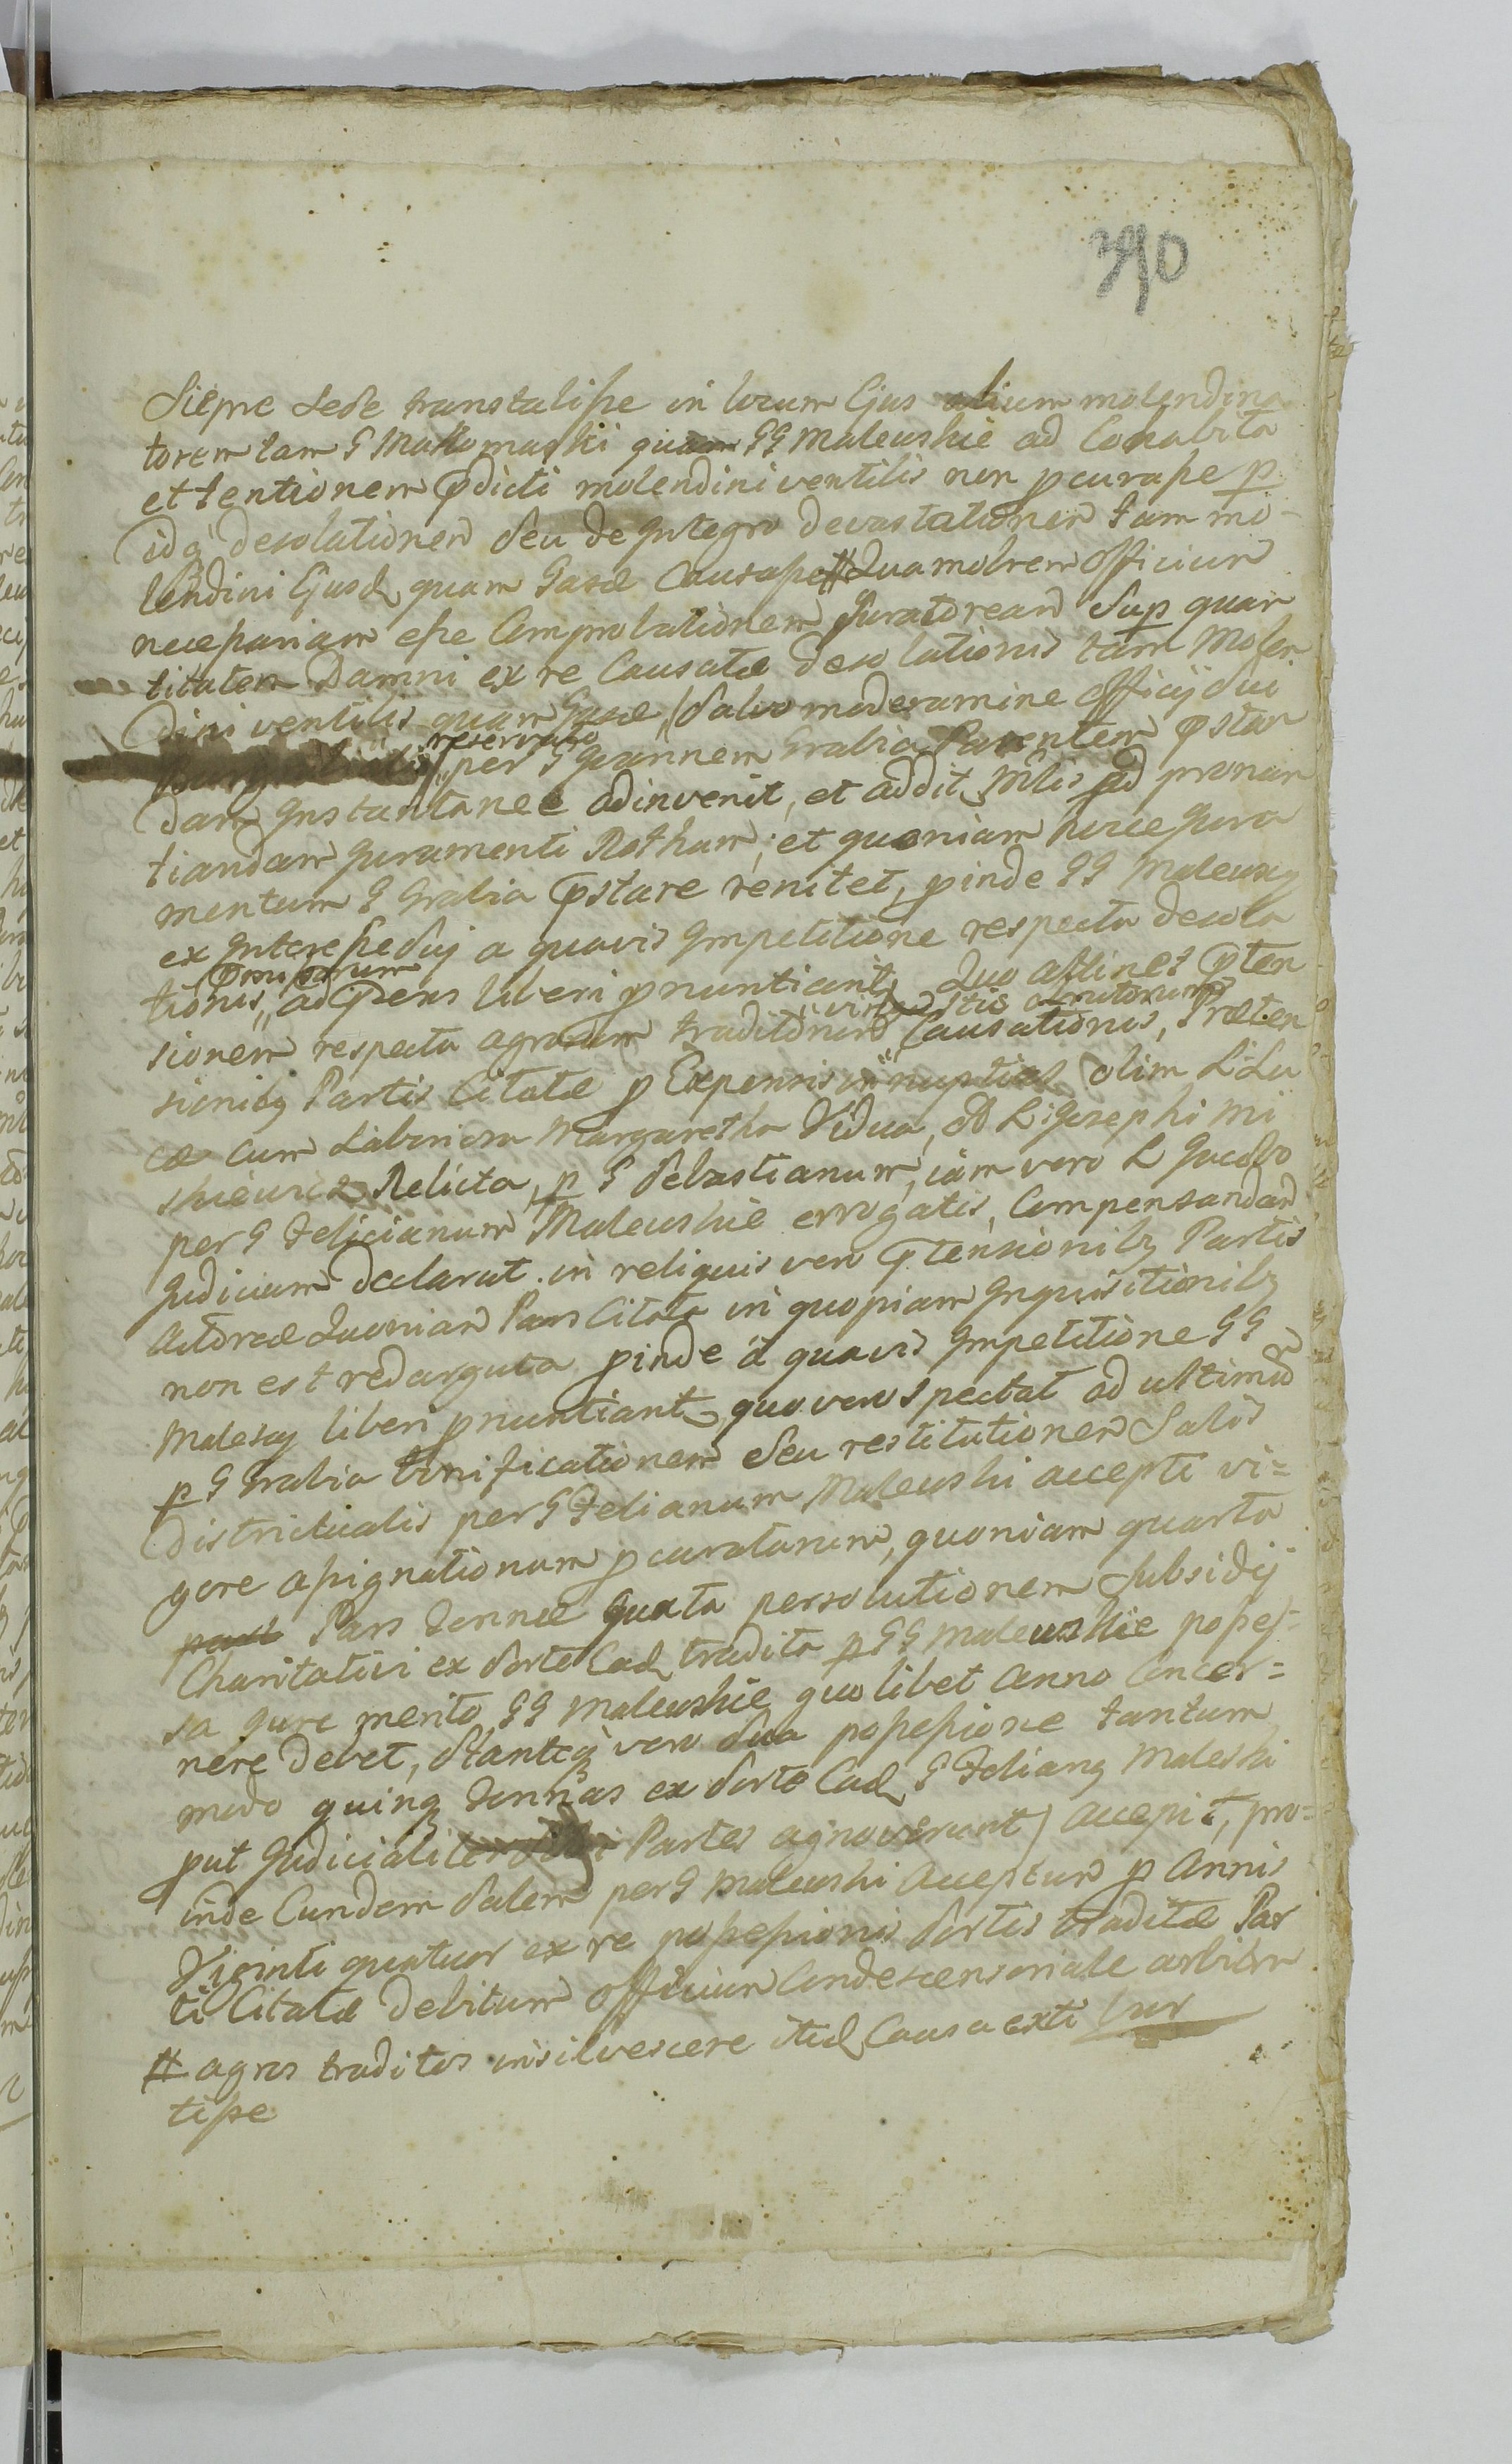 390
Siepne sede transtulisse in locum Ejus alium molendina
torem tam G Małomaski quam GG Maleuskie ad Cohabita
et tentionem pdicti molendini ventilis non pcurasse p
idq desolationem seu de Integro devastationem tam mo-
lendini Ejusd quam Casæ Causasse # Quamobrem Officium
necessariam esse Comprobationem Juratoream Sup quan
titatem Damni ex re Causatæ desolationis tam Molen
dini ventilis quam Casæ, salvo moderamine Officij sui
reservato
per G Joannem Grabia Parentem pstan
dam Instantanee adinvenit, et addit Mlis ad pronun
tiandam Juramenti Rotham; et quoniam hocce Jura
mentum G Grabia pstare renitet, pinde GG Maleuscy
ex Interesse suj a quavis Impetitione respectu desola
pmissorum
tionis, ad pens liberi pnuntiant, Quo attinet pten
sionem respectu agrorum traditorum Causationis, Præten
sionibq Partis Citatæ p Expensis in nuptias olim L: Lu
cæ cum Laboriosa Margaretha Vidua, A L: Josephi Mi
skiewicz Relicta, p G Sebastianum, iam vero L Jacobo
per G Felicianum Maleuskie errogatis, Compensandam
Judicium declarat. in reliquis vero ptensionibq Partis
Actoreæ Quoniam Pars Citata in quopiam Inquisitionibq
non est redarguta pinde a quavis Impetitione GG
Malescy liberi pnuntiant, quo vero spectat ad ultimum
p G Grabia bonificationem seu restitutionem Salis
Districtualis per G Felianum Maleuski accepti vi=
gore assignationum pcuratarum, quoniam quarta
Pars Tonnæ Juxta persolutionem Subsidij
Charitativi ex sorte Ead tradita p GG Maleuskie posses=
sa Jure merito GG Maleuskie quolibet Anno Concer=
nere debet, stanteq vero sua possessione tantum
modo quinq Tonnas ex sorte Ead G Felianq Maleski
put Judicialiter Partes agnoverunt) accepit, pro=
inde Eundem salem per G Maleuski Acceptum p Annis
Viginti quatuor ex re possessionis sortis traditæ Par
ti Citatæ debitum Officium Condescensoriale arbitra
tur
# agros traditos insilvescere itid Causa exti
tisse